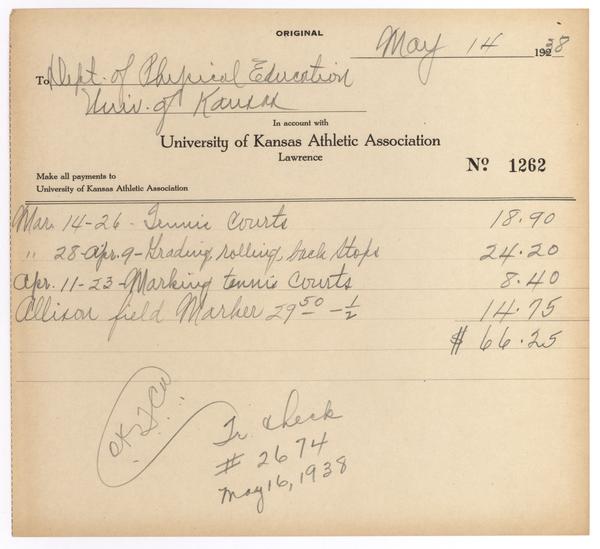 ORIGINAL
May 14 1928 8
To Dept. of Physical Education
Univ. of Kansas
In account with
University of Kansas Athletic Association
Lawrence
Nº 1262
Make all payments to
University of Kansas Athletic Association
Mar. 14-26 - Tennis Courts 18.90
" 28-Apr. 9 - Grading, rolling, back stops 24.20
Apr. 11-23 - Marking tennis courts 8.40
Allison field Marker 29 50 - 1/2 14.75
$ 66.25
Tr. check
# 2674
May 16, 1938